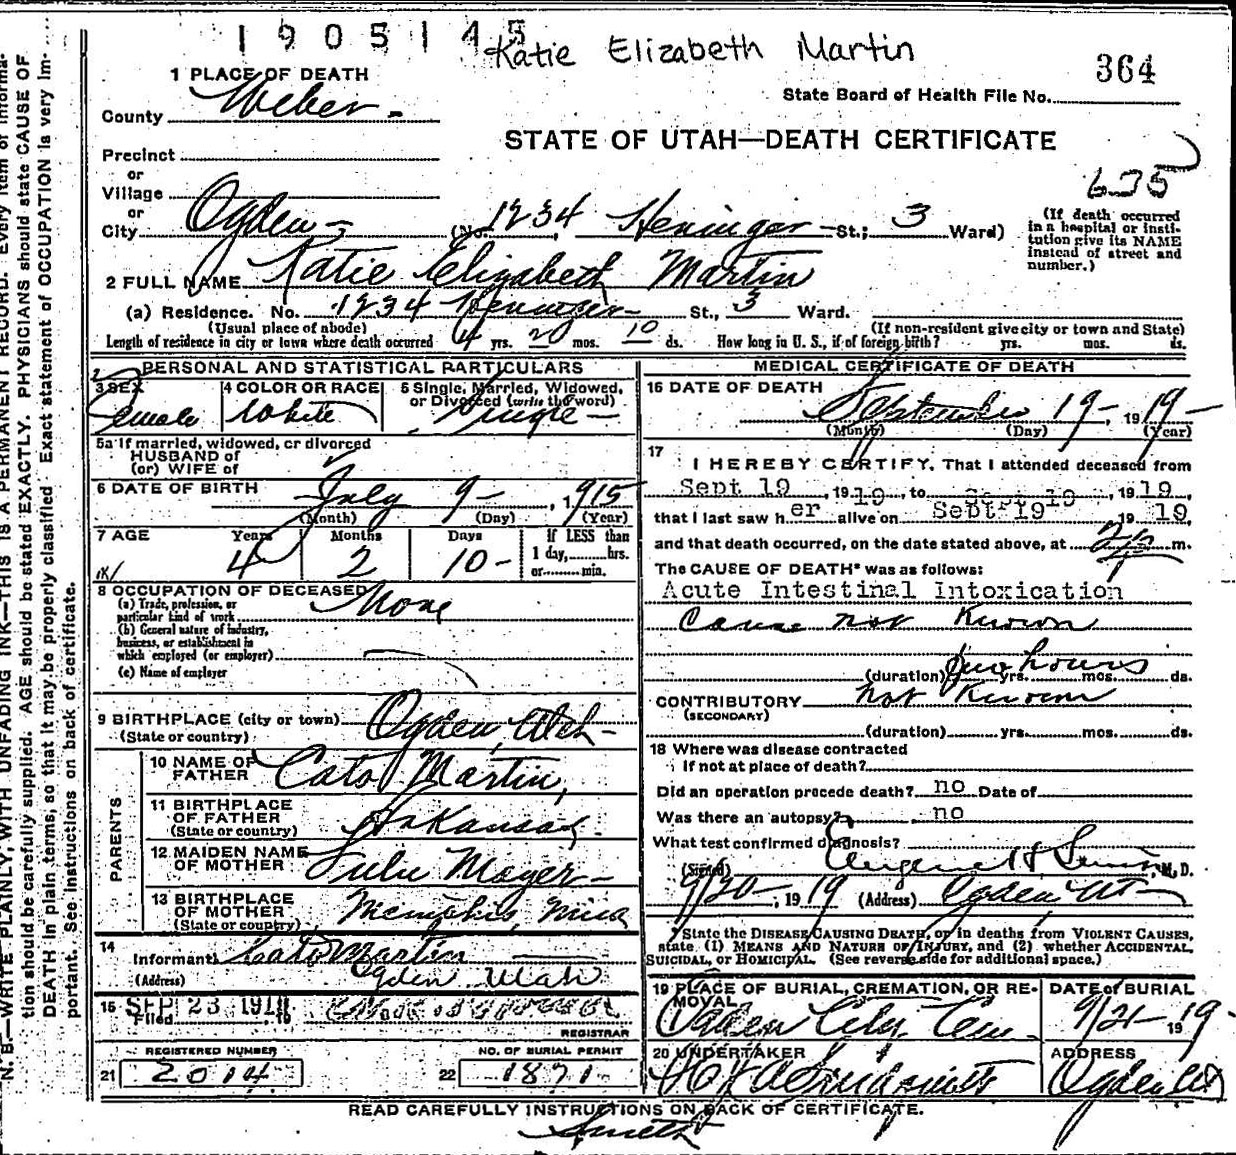 1905145
Katie Elizabeth Martin
364
1 PLACE OF DEATH
State Board of Health File No.
County Weber
STATE OF UTAH—DEATH CERTIFICATE
Precinct
or
Village
or
635
City Ogden (No. 1234 Heninger St.; 3 Ward)
(If death occurred in a hospital or insti-
tution give its NAME
instead of street and
number.)
2 FULL NAME Katie Elizabeth Martin
(a) Residence. No. 1234 Heninger St., 3 Ward.
(Usual place of abode) (If non-resident give city or town and State)
Length of residence in city or town where death occurred 4 yrs. 2 mos. 10 ds. How long in U. S., if of foreign birth? yrs. mos. ds.
PERSONAL AND STATISTICAL PARTICULARS
3 SEX 4 COLOR OR RACE 5 Single, Married, Widowed,
or Divorced (write the word)
Female White Single
5a If married, widowed, or divorced
HUSBAND of
(or) WIFE of
6 DATE OF BIRTH July 9 - , 1915
(Month) (Day) (Year)
7 AGE Years Months Days If LESS than
4 2 10 1 day, hrs.
or min.
8 OCCUPATION OF DECEASED None
(a) Trade, profession, or
particular kind of work
(b) General nature of industry,
business, or establishment in
which employed (or employer)
(c) Name of employer
9 BIRTHPLACE (city or town) Ogden, Utah
(State or country)
PARENTS
10 NAME OF
FATHER Cato Martin
11 BIRTHPLACE
OF FATHER Arkansas
(State or country)
12 MAIDEN NAME
OF MOTHER Mayer
13 BIRTHPLACE
OF MOTHER Memphis
(State or country)
14
Informant Cato Martin
(Address) Ogden Utah
15 SEP 23 1919
Filed , 19
REGISTRAR
REGISTERED NUMBER NO. OF BURIAL PERMIT
21 2014 22 1871
MEDICAL CERTIFICATE OF DEATH
16 DATE OF DEATH
September 19 - 1919
(Month) (Day) (Year)
17
I HEREBY CERTIFY, That I attended deceased from
Sept 19 , 1919, to Sept 19 , 1919,
that I last saw her alive on Sept 19 1919
and that death occurred, on the date stated above, at m.
The CAUSE OF DEATH* was as follows:
Acute Intestinal Intoxication
Cause not Known
(duration) two hours yrs. mos. ds.
CONTRIBUTORY not Known
(SECONDARY)
(duration) yrs. mos. ds.
18 Where was disease contracted
If not at place of death?
Did an operation precede death? no Date of
Was there an autopsy? no
What test confirmed diagnosis?
(Signed) Eugene H. , M. D.
9/20 - , 1919 (Address) Ogden Ut
* State the DISEASE CAUSING DEATH, or in deaths from VIOLENT CAUSES,
state (1) MEANS AND NATURE OF INJURY, and (2) whether ACCIDENTAL,
SUICIDAL, or HOMICIDAL. (See reverse side for additional space.)
19 PLACE OF BURIAL, CREMATION, OR RE-
MOVAL DATE of BURIAL
Ogden City Cem 9/21 - 1919
20 UNDERTAKER ADDRESS
Ogden Ut
READ CAREFULLY INSTRUCTIONS ON BACK OF CERTIFICATE.
Smith
N. B.—WRITE PLAINLY, WITH UNFADING INK—THIS IS A PERMANENT RECORD. Every item of informa-
tion should be carefully supplied. AGE should be stated EXACTLY. PHYSICIANS should state CAUSE OF
DEATH in plain terms, so that it may be properly classified. Exact statement of OCCUPATION is very im-
portant. See instructions on back of certificate.